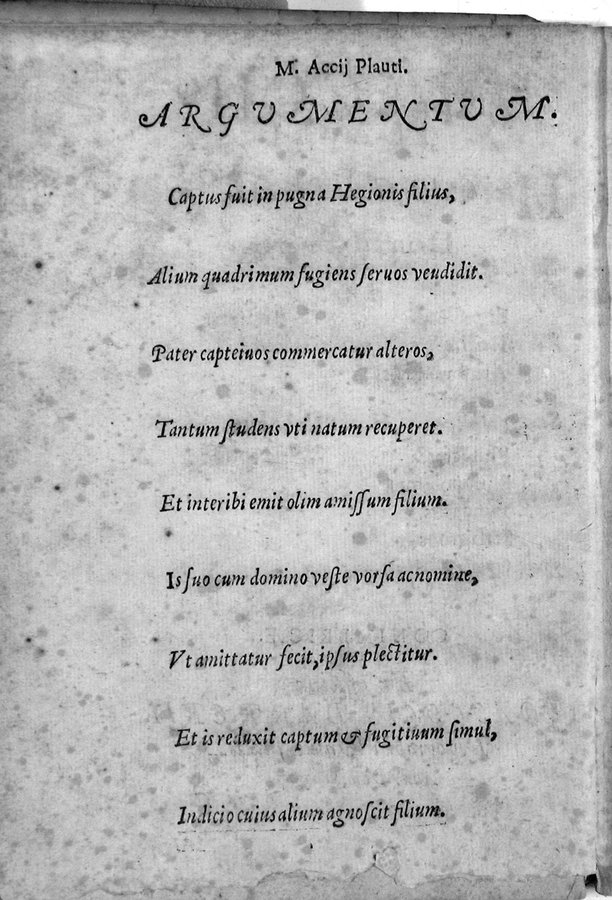 M. Accij Plauti.
ARGVMENTVM.
Captus fuit in pugna Hegionis filius,
Alium quadrimum fugiens ſeruos vendidit.
Pater capteiuos commercatur alteros,
Tantum ſtudens vti natum recuperet.
Et interibi emit olim amiſſum filium.
Is ſuo cum domino veſte vorſa acnomine,
Vt amittatur fecit, ipſus plectitur.
Et is reduxit captum & fugitiuum ſimul,
Indicio cuius alium agnoſcit filium.